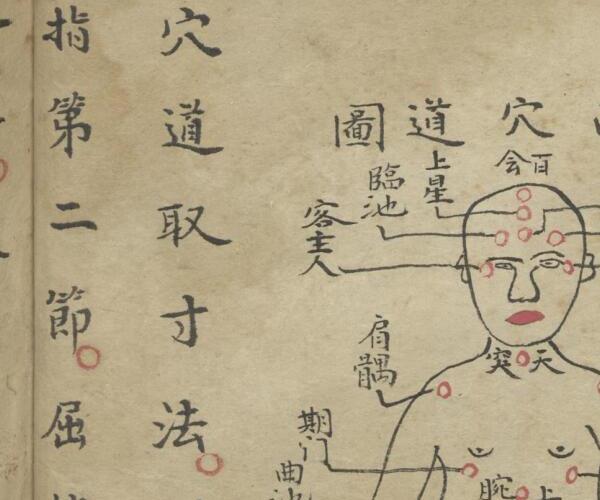 穴道圖
百会
上星
臨池
客主人
天突
肩髃
期门
曲池
腕上
穴道取寸法
指第二節屈